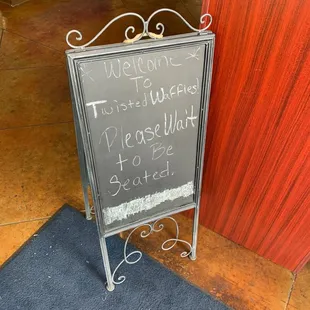 Welcome
To
Twisted Waffles!
Please Wait
to Be
Seated.